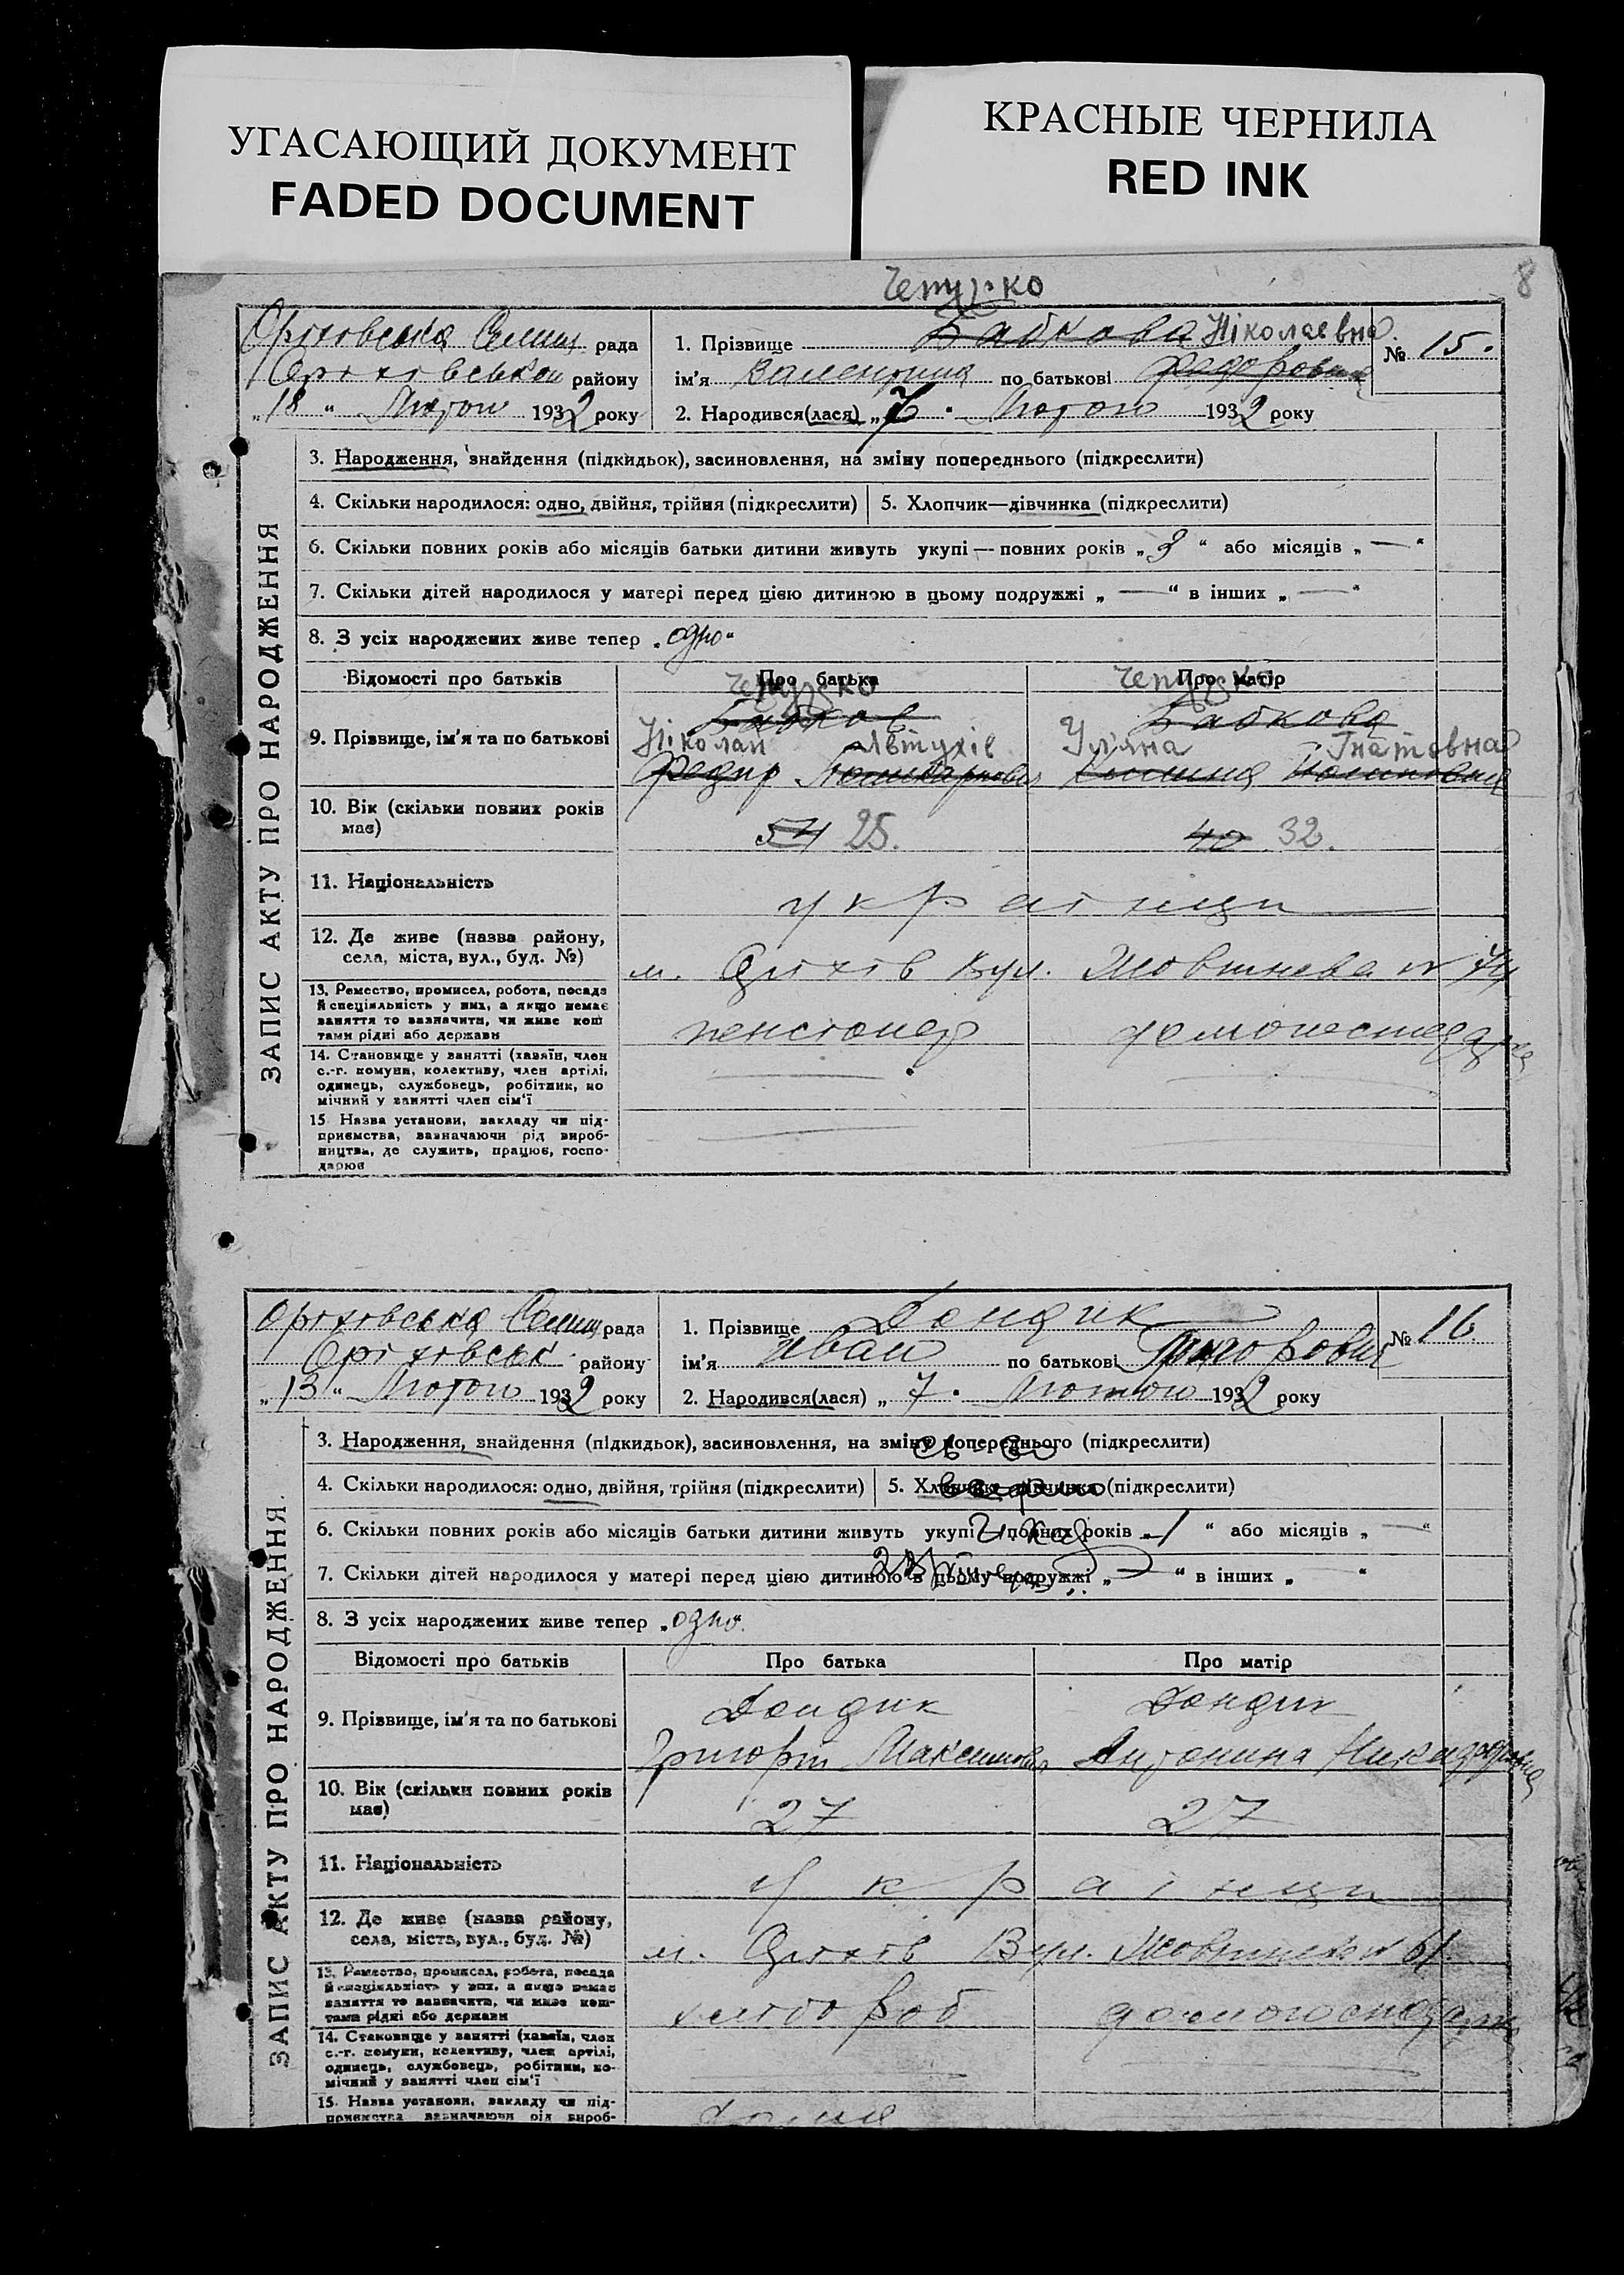 УГАСАЮЩИЙ ДОКУМЕНТ
FADED DOCUMENT
КРАСНЫЕ ЧЕРНИЛА
RED INK
8
Чепурко
ЗАПИС АКТУ ПРО НАРОДЖЕННЯ
Оріхівська Селищ рада
Оріхівськой району
„18“ Лютого 1932 року
1. Прізвище Бабкова Ніколаевна
ім'я Валентина по батькові Федоровна
№ 15.
2. Народився(лася) „7“ Лютого 1932 року
3. Народження, знайдення (підкидьок), засиновлення, на зміну попереднього (підкреслити)
4. Скільки народилося: одно, двійня, трійня (підкреслити) 5. Хлопчик—дівчинка (підкреслити)
6. Скільки повних років або місяців батьки дитини живуть укупі — повних років „3“ або місяців „—“
7. Скільки дітей народилося у матері перед цією дитиною в цьому подружжі „—“ в інших „—“
8. З усіх народжених живе тепер „одно“
Відомості про батьків Про батька Про матір
Чепурко Чепурко
Бабков Бабкова
9. Прізвище, ім'я та по батькові Ніколай Автухів Уляна Гнатовна
Федир
10. Вік (скільки повних років має) 54 25. 42 32.
11. Національність українци
12. Де живе (назва району, села, міста, вул., буд. №) м. Оріхів Вул. Жовтнева № 74
13. Ремество, промисел, робота, посада й спеціяльність у них, а якщо немає заняття то зазначити, чи живе коштами рідні або держави пенсіонер домогосподарка
14. Становище у занятті (хазяїн, член с.-г. комуни, колективу, член артілі, одинець, службовець, робітник, помічний у занятті член сім'ї
15 Назва установи, закладу чи підприємства, зазначаючи рід виробництва, де служить, працює, господарює
ЗАПИС АКТУ ПРО НАРОДЖЕННЯ
Оріхівська Селищ рада
Оріхівськ району
„13“ Лютого 1932 року
1. Прізвище Дондик
ім'я Иван по батькові Григорович
№ 16
2. Народився(лася) „7. Лютого 1932 року
3. Народження, знайдення (підкидьок), засиновлення, на зміну попереднього (підкреслити)
4. Скільки народилося: одно, двійня, трійня (підкреслити) 5. Хлопчик—дівчинка (підкреслити)
6. Скільки повних років або місяців батьки дитини живуть укупі — повних років „1“ або місяців „—“
7. Скільки дітей народилося у матері перед цією дитиною в цьому подружжі „—“ в інших „ “
8. З усіх народжених живе тепер „одно“
Відомості про батьків Про батька Про матір
Дондик Дондик
9. Прізвище, ім'я та по батькові Григорій Максимович Антонина Никифоровна
10. Вік (скільки повних років має) 27 27
11. Національність українци
12. Де живе (назва району, села, міста, вул., буд. №) м. Оріхів Вул. Жовтнева № 61.
13. Ремество, промисел, робота, посада й спеціяльність у них, а якщо немає заняття то зазначити, чи живе коштами рідні або держави хлібороб домогосподарка
14. Становище у занятті (хазяїн, член с.-г. комуни, колективу, член артілі, одинець, службовець, робітник, помічний у занятті член сім'ї
15. Назва установи, закладу чи підприємства зазначаючи рід вироб-